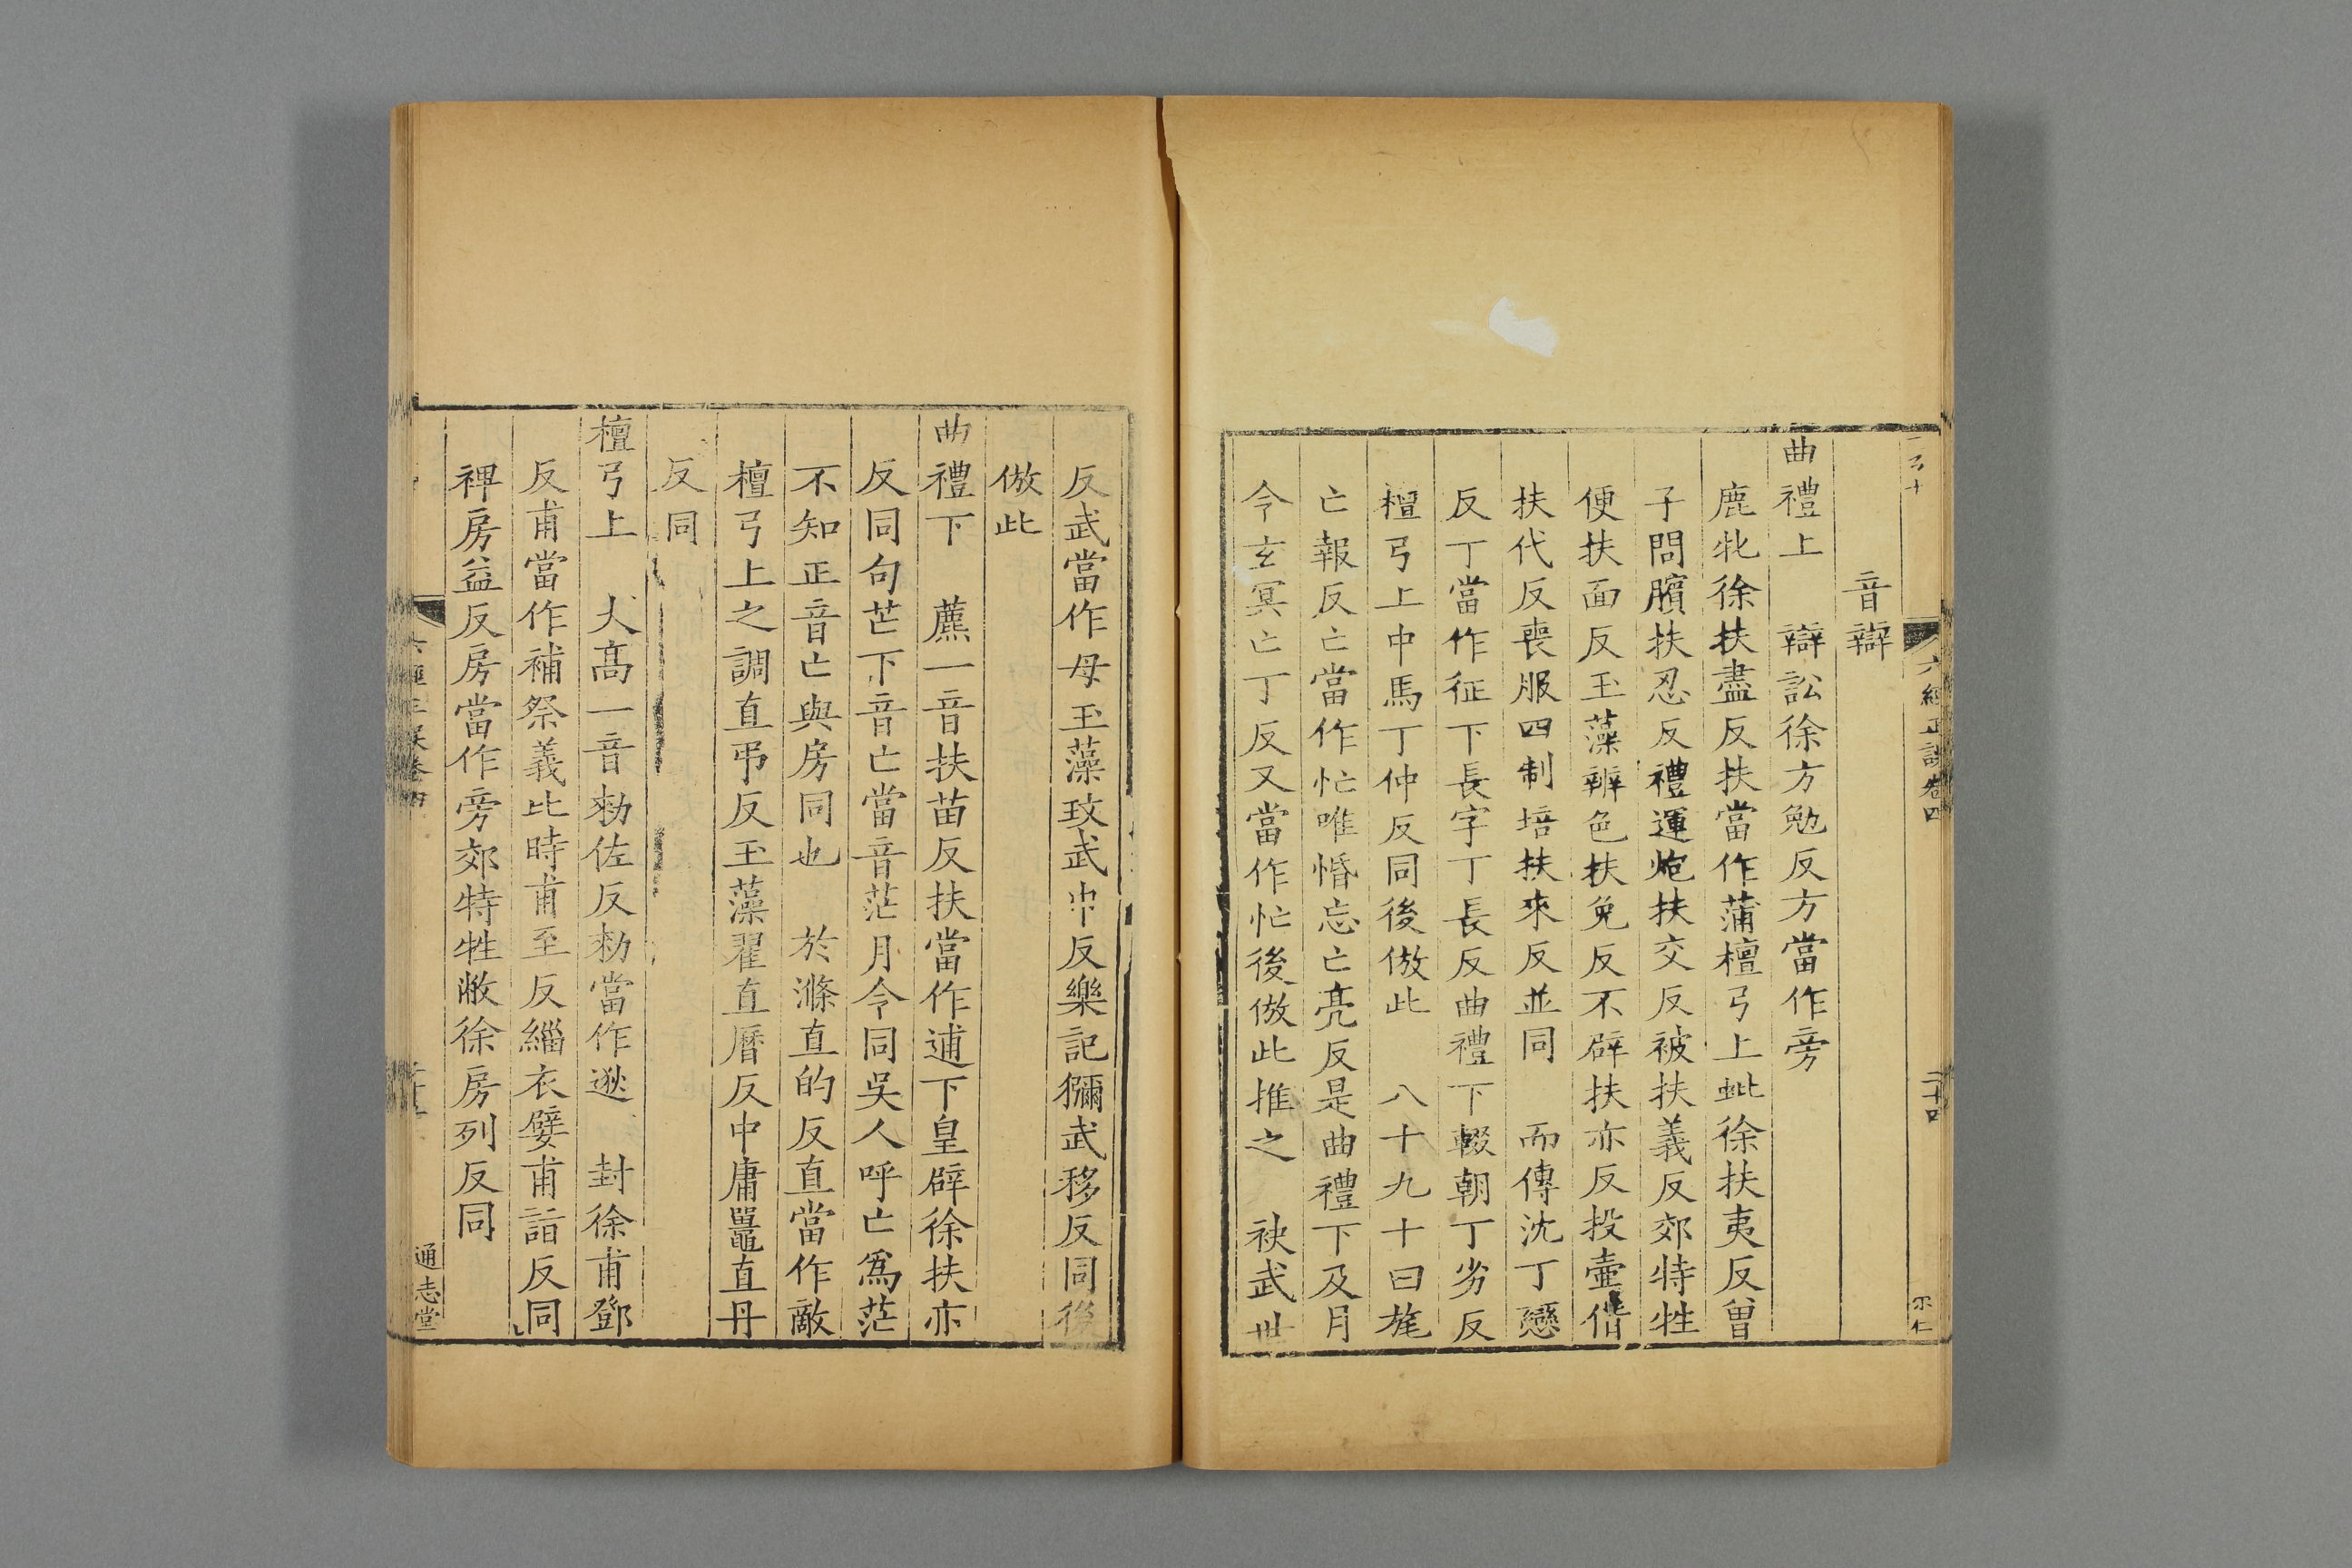 六經正誤卷四
二十四
音辯
曲禮上 辯訟徐方勉反方當作旁
鹿牝徐扶盡反扶當作蒲檀弓上蚍徐扶夷反曾
子問臏扶忍反禮運炮扶交反被扶義反郊特牲
便扶面反玉藻辨色扶免反不辟扶亦反投壺偝
扶代反喪服四制培扶來反並同 而傳沈丁戀
反丁當作征下長字丁長反曲禮下輟朝丁劣反
檀弓上中馬丁仲反同後倣此 八十九十曰旄
亡報反亡當作忙唯惛忘亡亮反是曲禮下及月
令玄冥亡丁反又當作忙後倣此推之 袂武世
反武當作母玉藻玟武巾反樂記獼武移反同後
倣此
曲禮下 藨一音扶苗反扶當作逋下皇辟徐扶亦
反同句芒下音亡當音茫月令同吳人呼亡為茫
不知正音亡與房同也 於滌直的反直當作敵
檀弓上之調直弔反玉藻翟直曆反中庸鼉直丹
反同
檀弓上 犬高一音勑佐反勑當作逖 封徐甫鄧
反甫當作補祭義比時甫至反緇衣嬖甫詣反同
裨房益反房當作旁郊特牲敝徐房列反同
六經正誤卷四
通志堂